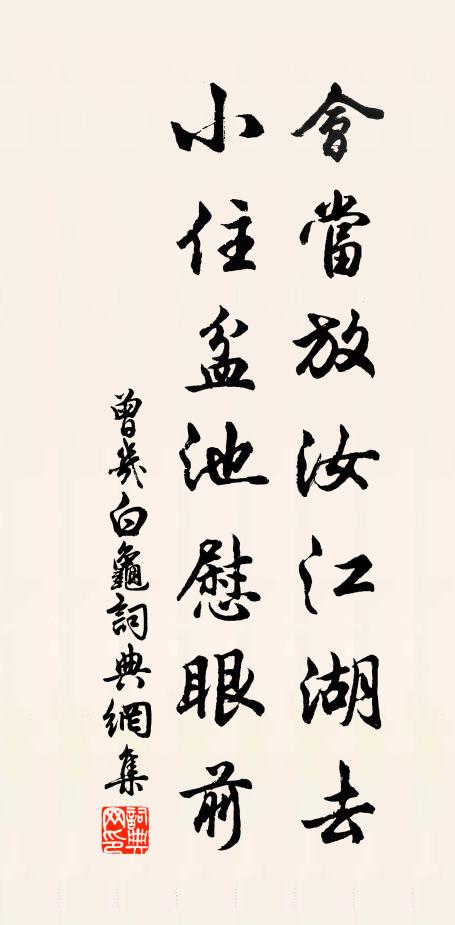 會當放汝江湖去
小住盆池慰眼前
曾幾白龜詞典網集
詞典網印